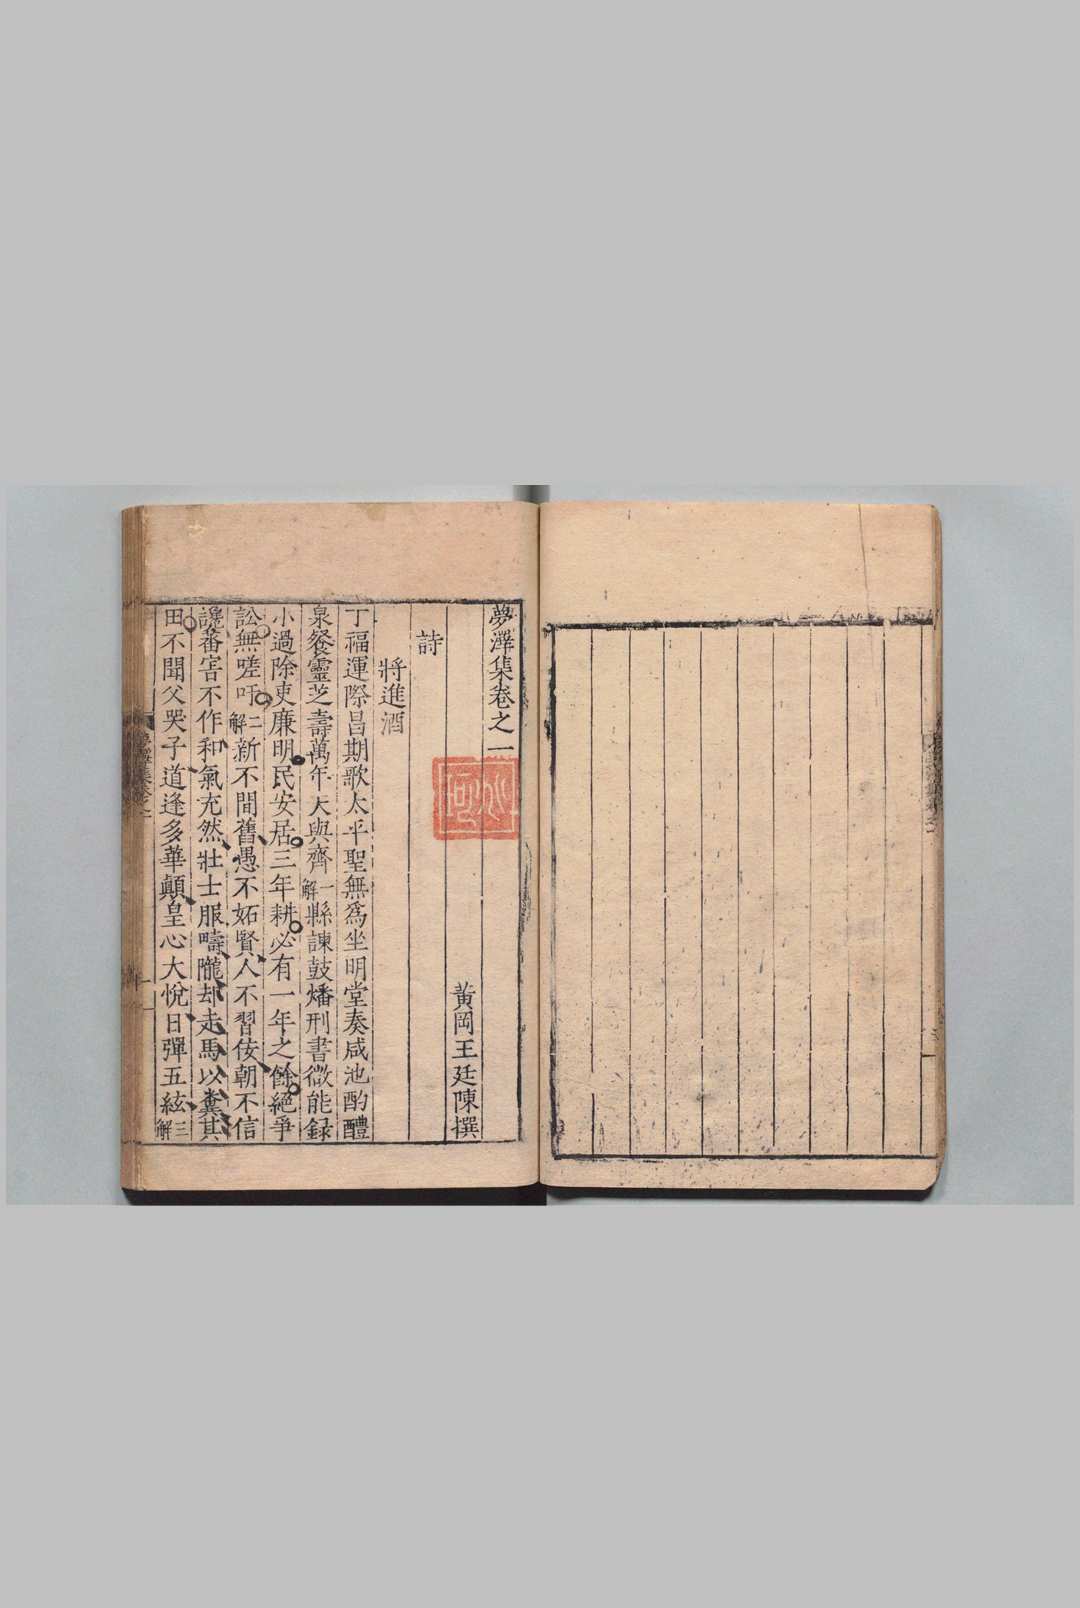 夢澤集卷之一
黃岡王廷陳撰
詩
將進酒
丁福運際昌期歌太平聖無爲坐明堂奏咸池酌醴
泉餐靈芝壽萬年天與齊一解縣諫鼓燔刑書微能録
小過除吏廉明民安居三年耕必有一年之餘絕爭
訟無嗟吁二解新不間舊愚不妬賢人不習佞朝不信
讒菑害不作和氣充然壯士服疇隴却走馬以糞其
田不聞父哭子道逢多華顛皇心大悅日彈五絃三解